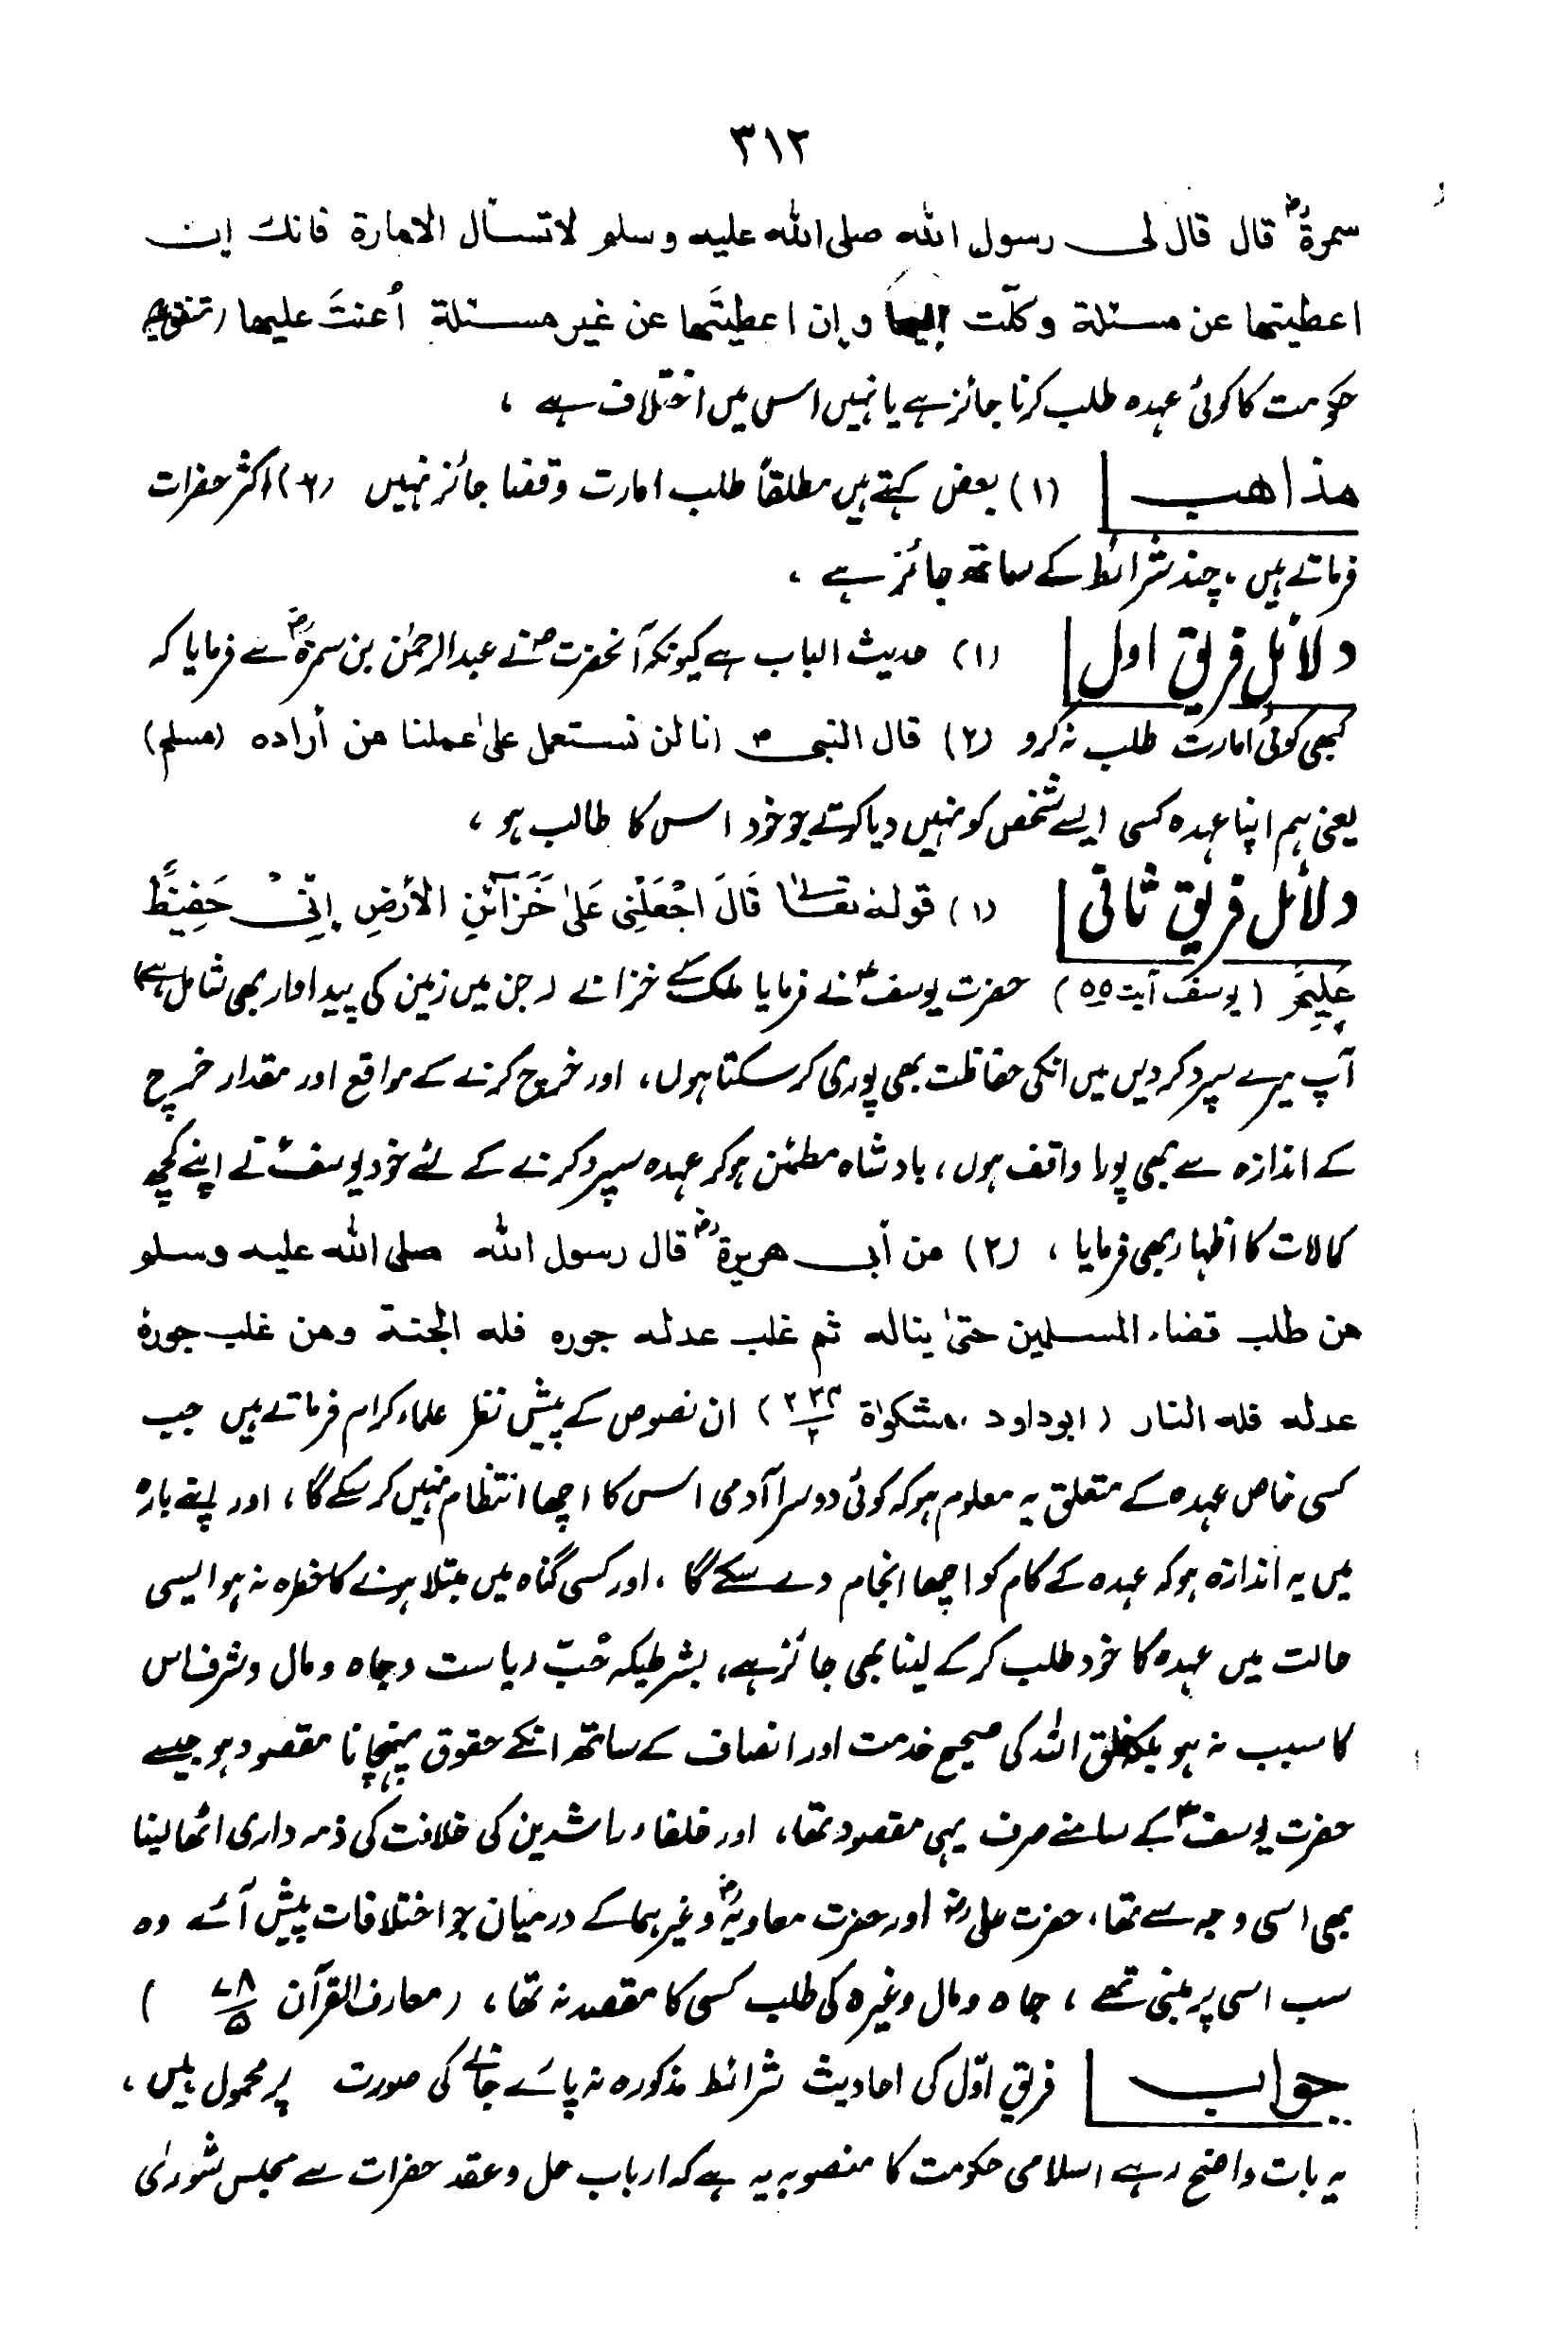 ۳۱۲
سمرة رض قال قال لی رسول الله صلی الله علیه وسلم لا تسأل الامارة فانك إن
اعطیتها عن مسئلة وکلّت الیها و إن اعطیتَها عن غیر مسئلة أُعنتَ علیها (متفق علیه)
حکومت کا کوئی عہدہ طلب کرنا جائز ہے یا نہیں اس میں اختلاف ہے ،
مذاهب (۱) بعض کہتے ہیں مطلقاً طلب امارت وقضا جائز نہیں (۲) اکثر حضرات
فرماتے ہیں ، چند شرائط کے ساتھ جائز ہے ،
دلائل فریق اول (۱) حدیث الباب ہے کیونکہ آنحضرت ؐ نے عبدالرحمٰن بن سمرةؓ سے فرمایا کہ
کبھی کوئی امارت طلب نہ کرو (۲) قال النبی ؐ انا لن نستعمل علیٰ عملنا من أراده (مسلم)
یعنی ہم اپنا عہدہ کسی ایسے شخص کو نہیں دیا کرتے جو خود اس کا طالب ہو ،
دلائل فریق ثانی (۱) قوله تعالیٰ قَالَ اجْعَلْنِی عَلیٰ خَزَآئِنِ الْأَرْضِ إِنِّیْ حَفِیْظٌ
عَلِیْمٌ (یوسف آیت ۵۵) حضرت یوسفؑ نے فرمایا ملک کے خزانے (جن میں زمین کی پیداوار بھی شامل ہے)
آپ میرے سپرد کردیں میں انکی حفاظت بھی پوری کرسکتا ہوں، اور خرچ کرنے کے مواقع اور مقدار خرچ
کے اندازہ سے بھی پورا واقف ہوں، بادشاہ مطمئن ہوکر عہدہ سپرد کرنے کے لئے خود یوسفؑ نے اپنے کچھ
کمالات کا اظہار بھی فرمایا ، (۲) عن أبی هریرة رض قال رسول الله صلی الله علیه وسلم
من طلب قضاء المسلمین حتیٰ یناله ثم غلب عدله جوره فله الجنة ومن غلب جورہٗ
عدله فله النار (ابوداود ، مشکوٰة) ان نصوص کے پیش نظر علماء کرام فرماتے ہیں جب
کسی خاص عہدہ کے متعلق یہ معلوم ہو کہ کوئی دوسرا آدمی اس کا اچھا انتظام نہیں کرسکے گا، اور اپنے بارہ
میں یہ اندازہ ہو کہ عہدہ کے کام کو اچھا انجام دے سکے گا ، اور کسی گناہ میں مبتلا ہونے کا خطرہ نہ ہو ایسی
حالت میں عہدہ کا خود طلب کرکے لینا بھی جائز ہے، بشرطیکہ حُبّ ریاست وجاہ ومال وشرف اس
کا سبب نہ ہو بلکہ خلق اللہ کی صحیح خدمت اور انصاف کے ساتھ انکے حقوق پہنچانا مقصود ہو جیسے
حضرت یوسفؑ کے سامنے صرف یہی مقصود تھا، اور خلفاء راشدین کی خلافت کی ذمہ داری اٹھا لینا
بھی اسی وجہ سے تھا، حضرت علی رضؓ اور حضرت معاویہؓ وغیرہما کے درمیان جو اختلافات پیش آئے وہ
سب اسی پر مبنی تھے ، جاہ ومال وغیرہ کی طلب کسی کا مقصد نہ تھا ، (معارف القرآن ۷۸/۵ )
جواب فریق اوّل کی احادیث شرائط مذکورہ نہ پائے جانے کی صورت پر محمول ہیں ،
یہ بات واضح رہے اسلامی حکومت کا منصوبہ یہ ہے کہ ارباب حل وعقد حضرات سے مجلس شوریٰ